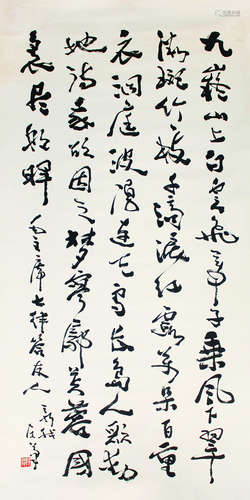 九嶷山上白云飞帝子乘风下翠
微斑竹一枝千滴泪红霞万朵百重
衣洞庭波涌连天雪长岛人歌动
地诗我欲因之梦寥廓芙蓉国
裏尽朝晖 毛主席七律答友人